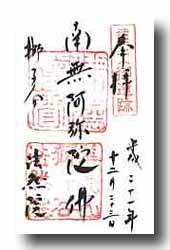 奉拝
平成二十一年
十二月二十三日
南無阿弥陀佛
法然院